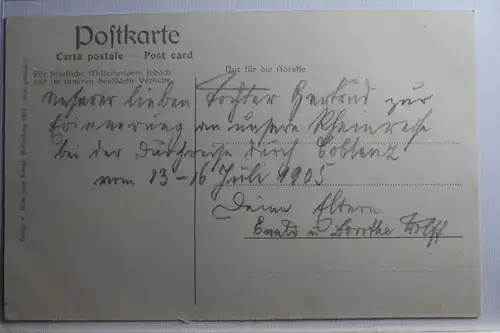 Postkarte
Carte postale — Post card
Für briefliche Mitteilungen, jedoch
nur im inneren deutschen Verkehr.
Nur für die Adresse
unserer lieben Tochter Gertrud zur
Erinnerung an unsere Rheinreise
bei der Durchreise durch Coblenz
vom 13-16 Juli 1905
Deine Eltern
u Dorothe Wolff